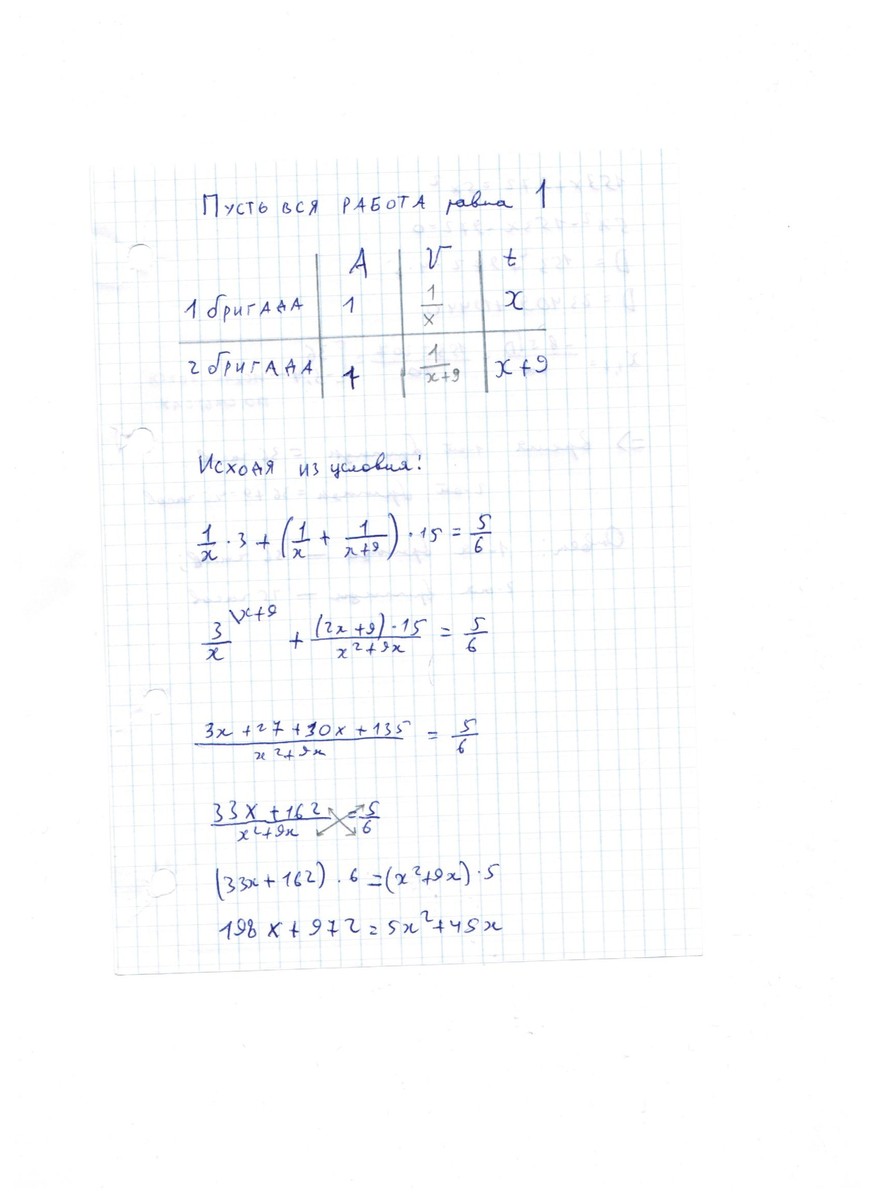 Пусть вся РАБОТА равна 1
A V t
1 бригАДА 1 1/x x
2 бригАДА 1 1/(x+9) x+9
Исходя из условия:
1/x · 3 + (1/x + 1/(x+9)) · 15 = 5/6
3/x \x+9 + (2x+9)·15/(x²+9x) = 5/6
(3x+27+30x+135)/(x²+9x) = 5/6
(33x+162)/(x²+9x) = 5/6
(33x+162)·6=(x²+9x)·5
198x+972=5x²+45x